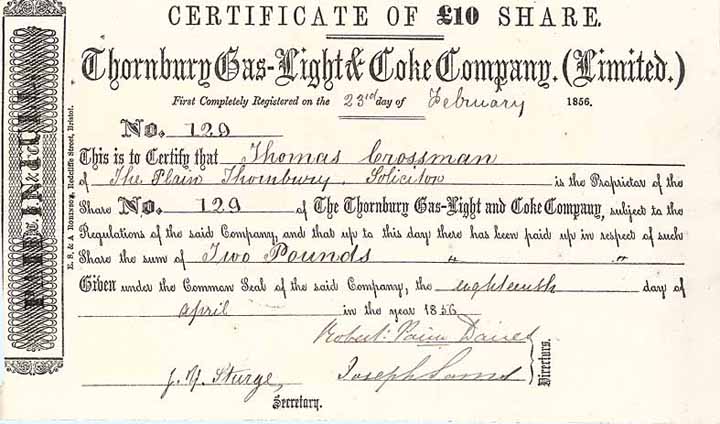 CERTIFICATE OF £10 SHARE.
Thornbury Gas-Light & Coke Company. (Limited.)
First Completely Registered on the 23rd day of February 1856.
No. 129
This is to Certify that Thomas Crossman
of The Plain Thornbury, Solicitor is the Proprietor of the
Share No. 129 of The Thornbury Gas-Light and Coke Company, subject to the
Regulations of the said Company, and that up to this day there has been paid up in respect of such
Share the sum of Two Pounds " "
Given under the Common Seal of the said Company, the eighteenth day of
April in the year 1856
Robert Daires
J. Y. Sturge,
Joseph
Directors.
Secretary.
PAID IN FULL
Redcliffe Street, Bristol.